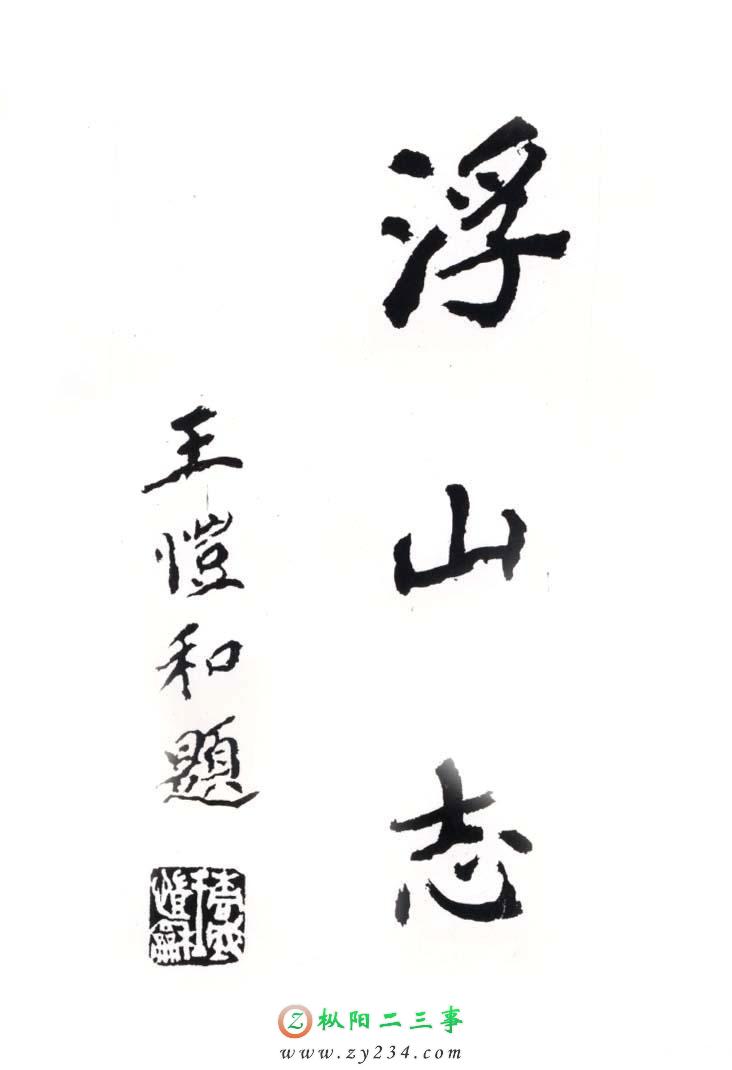 浮山志
王愷和題
枞阳二三事
www.zy234.com